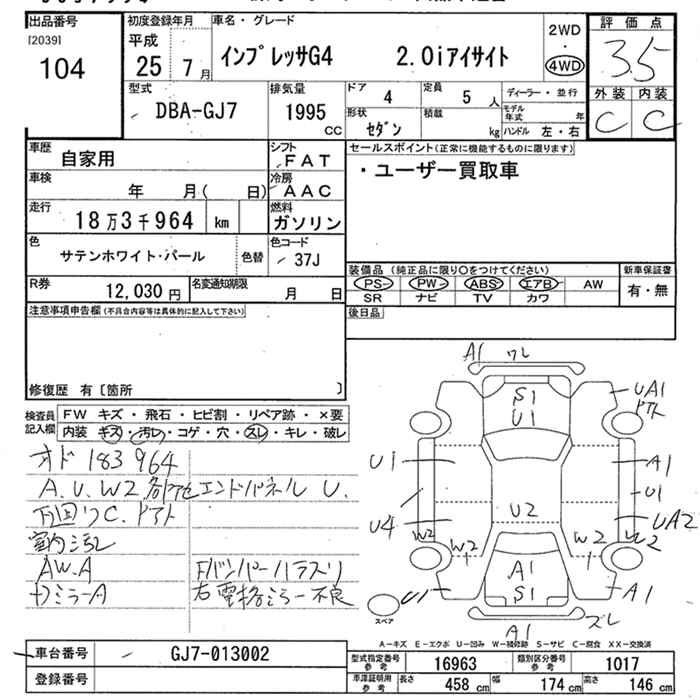 出品番号
[2039]
104
初度登録年月
平成
25 7月
車名・グレード
インプレッサG4 2.0iアイサイト
2WD
・
4WD
評価点
3.5
外装 内装
C C
型式
DBA-GJ7
排気量
1995
CC
ドア
4
定員
5 人
形状
セダン
積載
kg
ディーラー・並行
モデル年式 年
ハンドル 左・右
車歴
自家用
シフト
FAT
車検
年 月( 日)
冷房
AAC
走行
18万3千964 km
燃料
ガソリン
色
サテンホワイト・パール
色替
色コード
37J
R券
12,030円
名変通知期限
月 日
セールスポイント(正常に機能するものに限ります)
・ユーザー買取車
装備品(純正品に限り○をつけてください)
PS PW ABS エアB AW
SR ナビ TV カワ
新車保証書
有・無
後日品
注意事項申告欄(不具合内容等は具体的に記入して下さい)
修復歴 有〔箇所 〕
検査員
記入欄
FW キズ・飛石・ヒビ割・リペア跡・×要
内装 キズ・汚レ・コゲ・穴・スレ・キレ・破レ
オド 183964
A.U.W2 各所 エンドパネルU.
下回りC.
室内汚レ
AW.A
ドミラーA
Fバンパーハズレ
右電格ミラー不良
A1 ワレ
S1
U1
UA1
U1
A1
U1
U4
U2
UA2
W2
W2
W2
W2
A1
S1
U1
A1
A1
ズレ
スペア
A-キズ E-エクボ U-凹み W-補修跡 S-サビ C-腐食 XX-交換済
車台番号
GJ7-013002
登録番号
型式指定番号
参考
16963
類別区分番号
参考
1017
車庫証明用
参考
長さ 458cm
幅 174cm
高さ 146cm